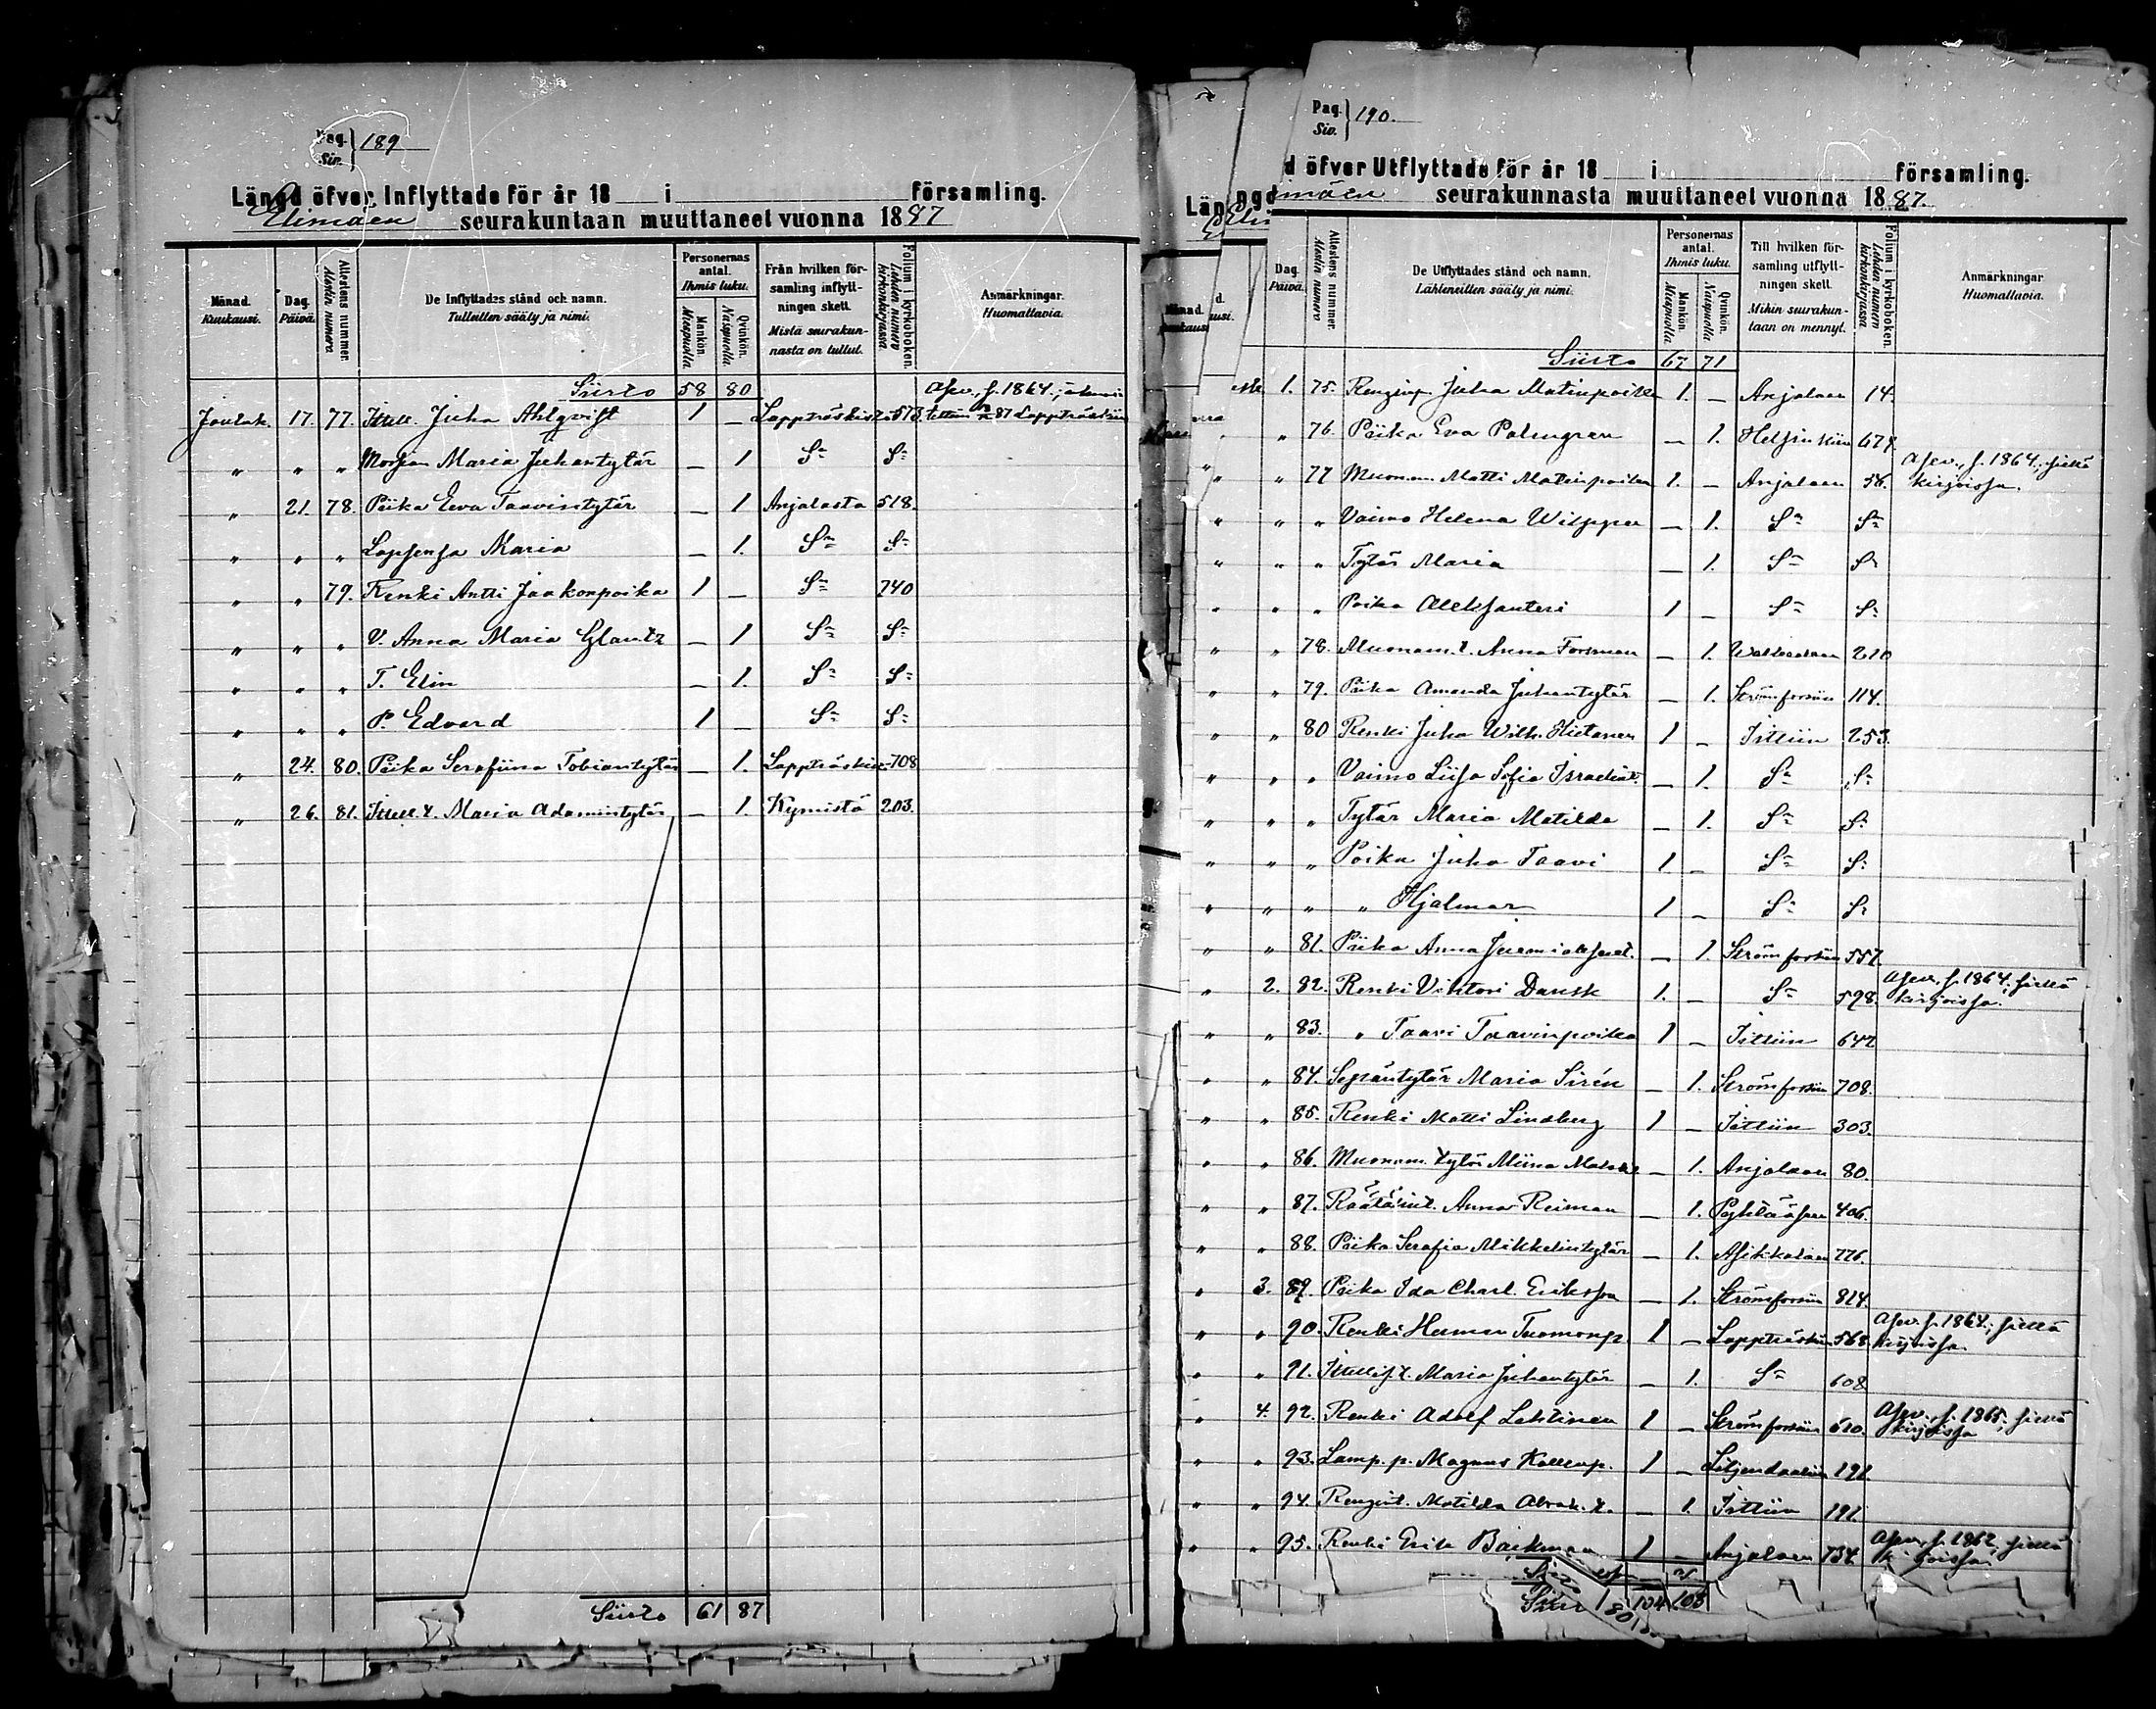 Pag. Siv. } 189
Längd öfver Inflyttade för år 18 i församling.
Elimäen seurakuntaan muuttaneet vuonna 1887
Månad. Kuukausi. Dag. Päivä. Attestens nummer. Allestin numero De Inflyttades stånd och namn. Tulleitten sääty ja nimi. Personernas antal. Ihmis luku. Mankön. Miespuolia Qvinkön. Naispuolia. Från hvilken församling inflyttningen skett. Mistä seurakunnasta on tullut. Folium i kyrkoboken. Lehden numero kirkonkirjassa. Anmärkningar. Huomattavia.
Siirto 58 80
Jouluk. 17. 77. Itsell. Juha Ahlqvist 1 – Lappträskistä 573. Asev. s. 1864.; 87 Lappträskiin
" " " Morsian Maria Juhantytär – 1 Sn S:
" 21. 78. Piika Eeva Taavintytär – 1 Anjalasta 518.
" " " Lapsensa Maria – 1. Sn S:
" " 79. Renki Antti Jaakonpoika 1 – Sn 740
" " " V. Anna Maria Glantz – 1 Sn S:
" " " T. Elin – 1. Sn S:
" " " P. Edvard 1 – Sn S:
" 24. 80. Piika Serafiina Tobiantytär – 1. Lappträskistä 708
" 26. 81. Itsell. t. Maria Adamintytär – 1. Kymistä 203.
Siirto 61 87
Pag. Siv. } 190.
d öfver Utflyttade för år 18 i församling.
mäen seurakunnasta muuttaneet vuonna 1887.
Dag. Päivä. Attestens nummer. Allestin numero De Utflyttades stånd och namn. Lähteneitten sääty ja nimi. Personernas antal. Ihmis luku. Mankön. Miespuolia Qvinkön. Naispuolia. Till hvilken församling utflyttningen skett. Mihin seurakuntaan on mennyt. Folium i kyrkoboken. Lehden numero kirkonkirjassa. Anmärkningar Huomattavia.
Siirto 67 71
1. 75. Renginp. Juha Matinpoika 1. – Anjalaan 14.
" 76. Piika Eva Palmgren – 1. Helsinkiin 679.
" " 77 Muonam. Matti Matinpoika 1. – Anjalaan 56. Asev. s. 1864.; siellä kirjoissa.
" " " Vaimo Helena Wilppu – 1. Sn Sn
" " " Tytär Maria – 1. Sn Sn
" " " Poika Aleksanteri 1 – Sn S:
" " 78. Muonam. t. Anna Forsman – 1. Walkealaan 210
" " 79. Piika Amanda Juhantytär – 1. Strömforsiin 114.
" " 80 Renki Juha Wilh. Hietanen 1 – Iittiin 253.
" " " Vaimo Liisa Sofia Israelint. – 1. Sn S:
" " " Tytär Maria Matilda – 1. Sn S:
" " " Poika Juha Taavi 1 – Sn S:
" " " " Hjalmar 1 – Sn S:
" " 81. Piika Anna – 1. Strömforsiin 557.
" 2. 82. Renki Viktori Dansk 1. – Sn 598. Asev. s. 1864.; siellä kirjoissa.
" " 83. " Taavi Taavinpoika 1 – Iittiin 647
" " 84. Sepäntytär Maria Sirén – 1. Strömforsiin 708.
" " 85. Renki Matti Lindberg 1 – Iittiin 303.
" " 86. Muonam. tytär Miina – 1. Anjalaan 80.
" " 87. Räätälint. Anna Reiman – 1. Pyhtääsen 406.
" " 88. Piika Serafia Mikkelintytär – 1. Asikkalaan 776.
" 3. 89. Piika Ida Charl. Eriksson – 1. Strömforsiin 814.
" " 90. Renki Herman Tuomonp. 1 – Lappträskiin 568. Asev. s. 1864.; siellä kirjoissa.
" " 91. Itsellis. t. Maria Juhantytär – 1. Sn 608
" 4. 92. Renki Adolf Lehtinen 1 – Strömforsiin 610. Asev. s. 1865.; siellä kirjoissa
" " 93. Lamp. p. Magnus Kallenp. 1 – Liljendaaliin 191
" " 94. Rengint. Matilda Abrah. t. – 1. Iittiin 191
" " 95. Renki Erik Backman 1 – Anjalaan 734. Asev. s. 1862, siellä
104 108